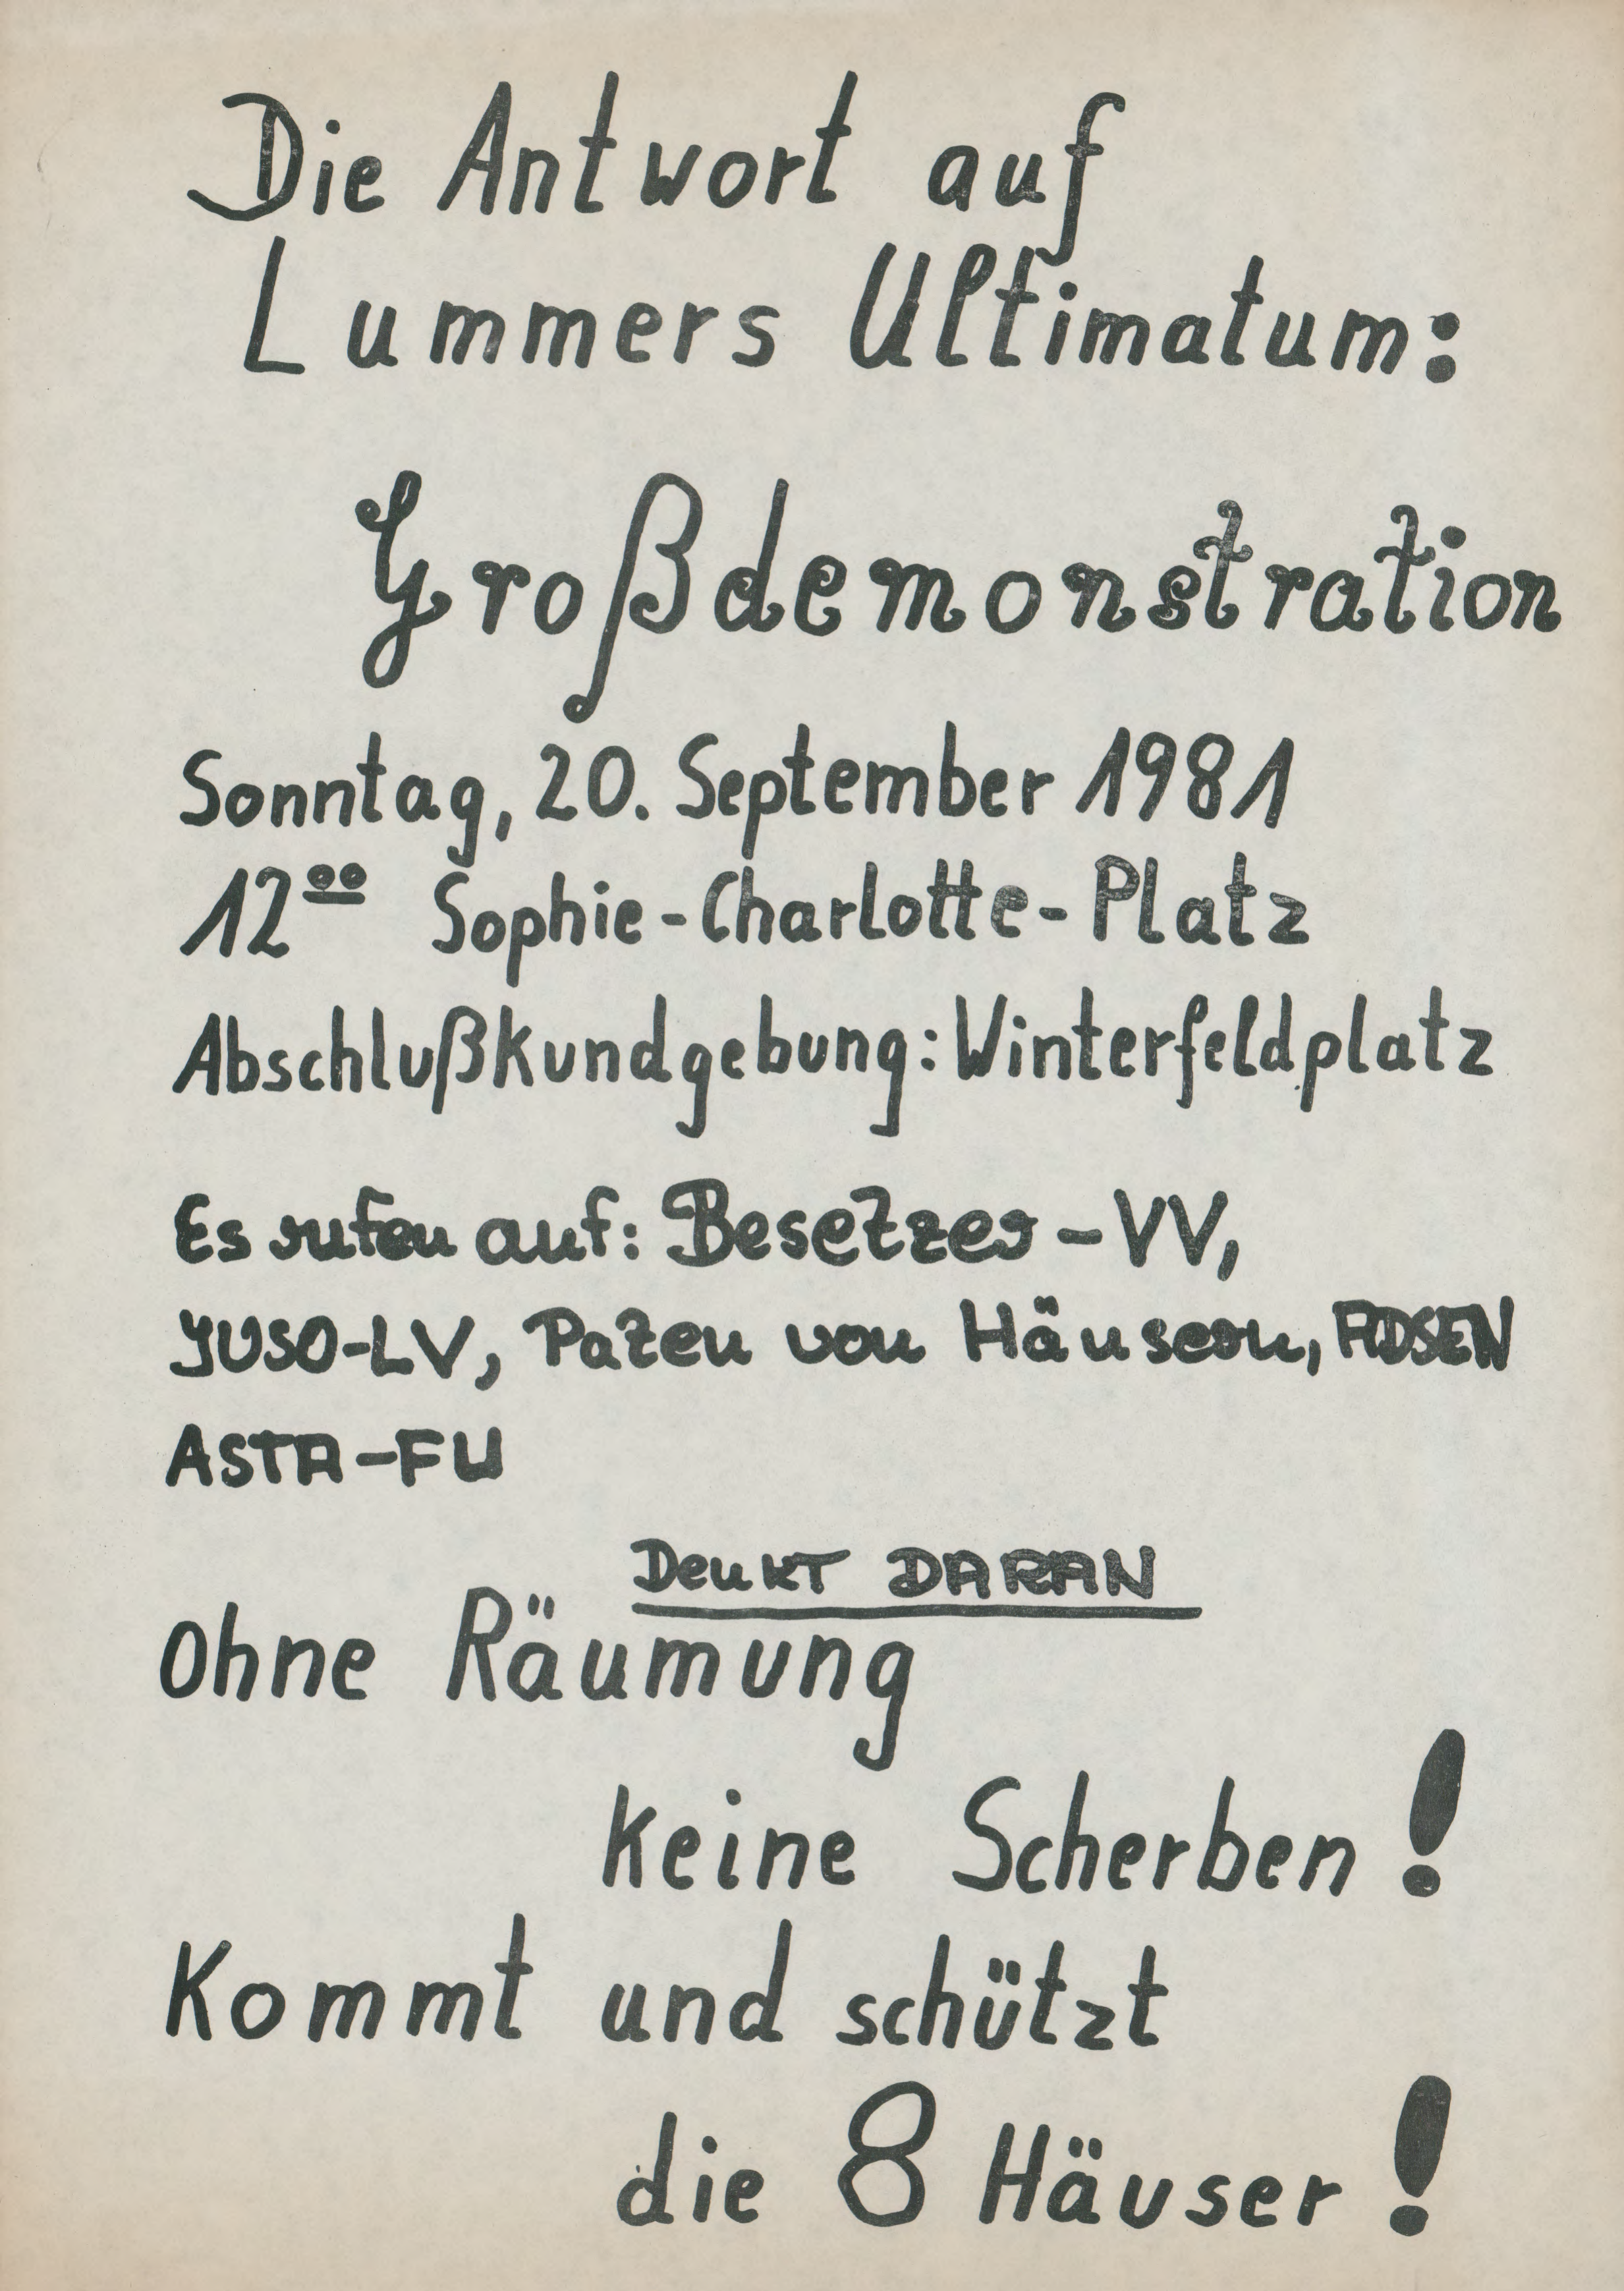 Die Antwort auf
Lummers Ultimatum:
Großdemonstration
Sonntag, 20. September 1981
12⁰⁰ Sophie-Charlotte-Platz
Abschlußkundgebung: Winterfeldplatz
Es rufen auf: Besetzer-VV,
JUSO-LV, Paten von Häusern,
ASTA-FU
Denkt DARAN
ohne Räumung
keine Scherben!
Kommt und schützt
die 8 Häuser!